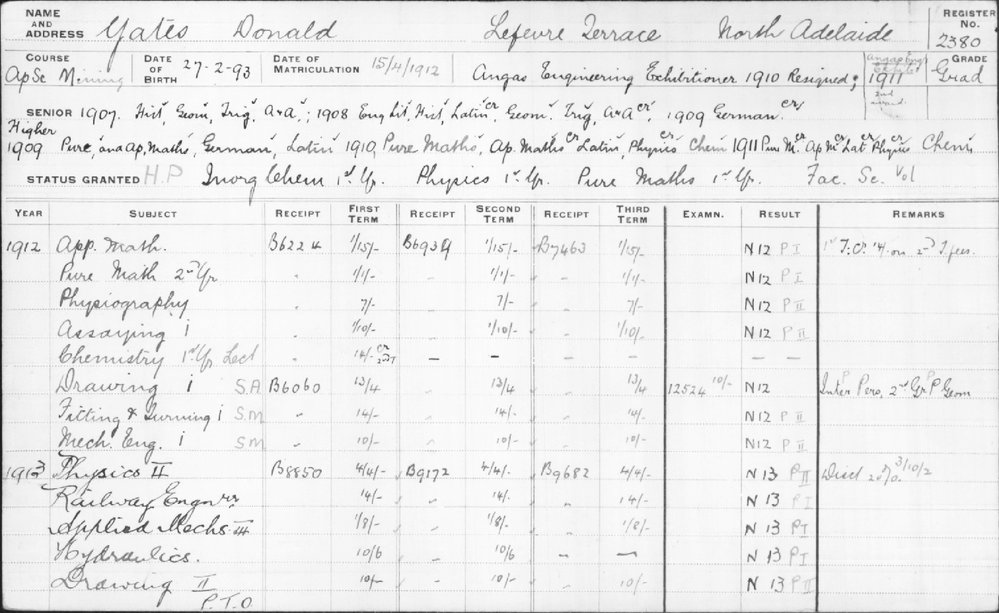 NAME AND ADDRESS Yates Donald Lefevre Terrace North Adelaide REGISTER No. 2380
COURSE ApSc Mining DATE OF BIRTH 27-2-93 DATE OF MATRICULATION 15/4/1912 Angas Engineering Exhibitioner 1910 Resigned; 1911 GRADE Grad
SENIOR 1907. Hist, Geom, Trig, A&A; 1908 Eng Lit, Hist, Latin cr, Geom. Trig, A&A cr, 1909 German cr
Higher
1909 Pure, and Ap, Maths, German, Latin 1910, Pure Maths, Ap. Maths cr Latin, Physics cr Chem 1911 Pure M. cr Ap M. cr Lat cr Physics cr Chem
STATUS GRANTED H.P Inorg Chem 1st Yr. Physics 1st Yr. Pure Maths 1st Yr. Fac. Sc. Vol
YEAR SUBJECT RECEIPT FIRST TERM RECEIPT SECOND TERM RECEIPT THIRD TERM EXAMN. RESULT REMARKS
1912 App. Math. B6224 1/15/- B6939 1/15/- B7463 1/15/- N12 P I 1st T. cr. on 2nd T fees.
Pure Math 2nd Yr " 1/1/- " 1/1/- " 1/1/- N12 P I
Physiography " 7/- " 7/- " 7/- N12 P II
Assaying i " 1/10/- " 1/10/- " 1/10/- N12 P II
Chemistry 1st Yr Lect " 14/- cr 2nd T — — — —
Drawing i S.A B6060 13/4 " 13/4 " 13/4 12524 10/- N12 Inter P Pers. 2nd Gr P Geom
Fitting & Turning i S.M " 14/- " 14/- " 14/- N12 P II
Mech. Eng. i S.M " 10/- " 10/- " 10/- N12 P II
1913 Physics II B8850 4/4/- B9172 4/4/- B9682 4/4/- N 13 P II Disct 3/10/2
Railway Engnrg " 14/- " 14/- " 14/- N 13 P I
Applied Mechs III " 1/8/- " 1/8/- " 1/8/- N 13 P I
Hydraulics. " 10/6 " 10/6 " — N 13 P I
Drawing II " 10/- " 10/- " 10/- N 13 P II
P.T.O